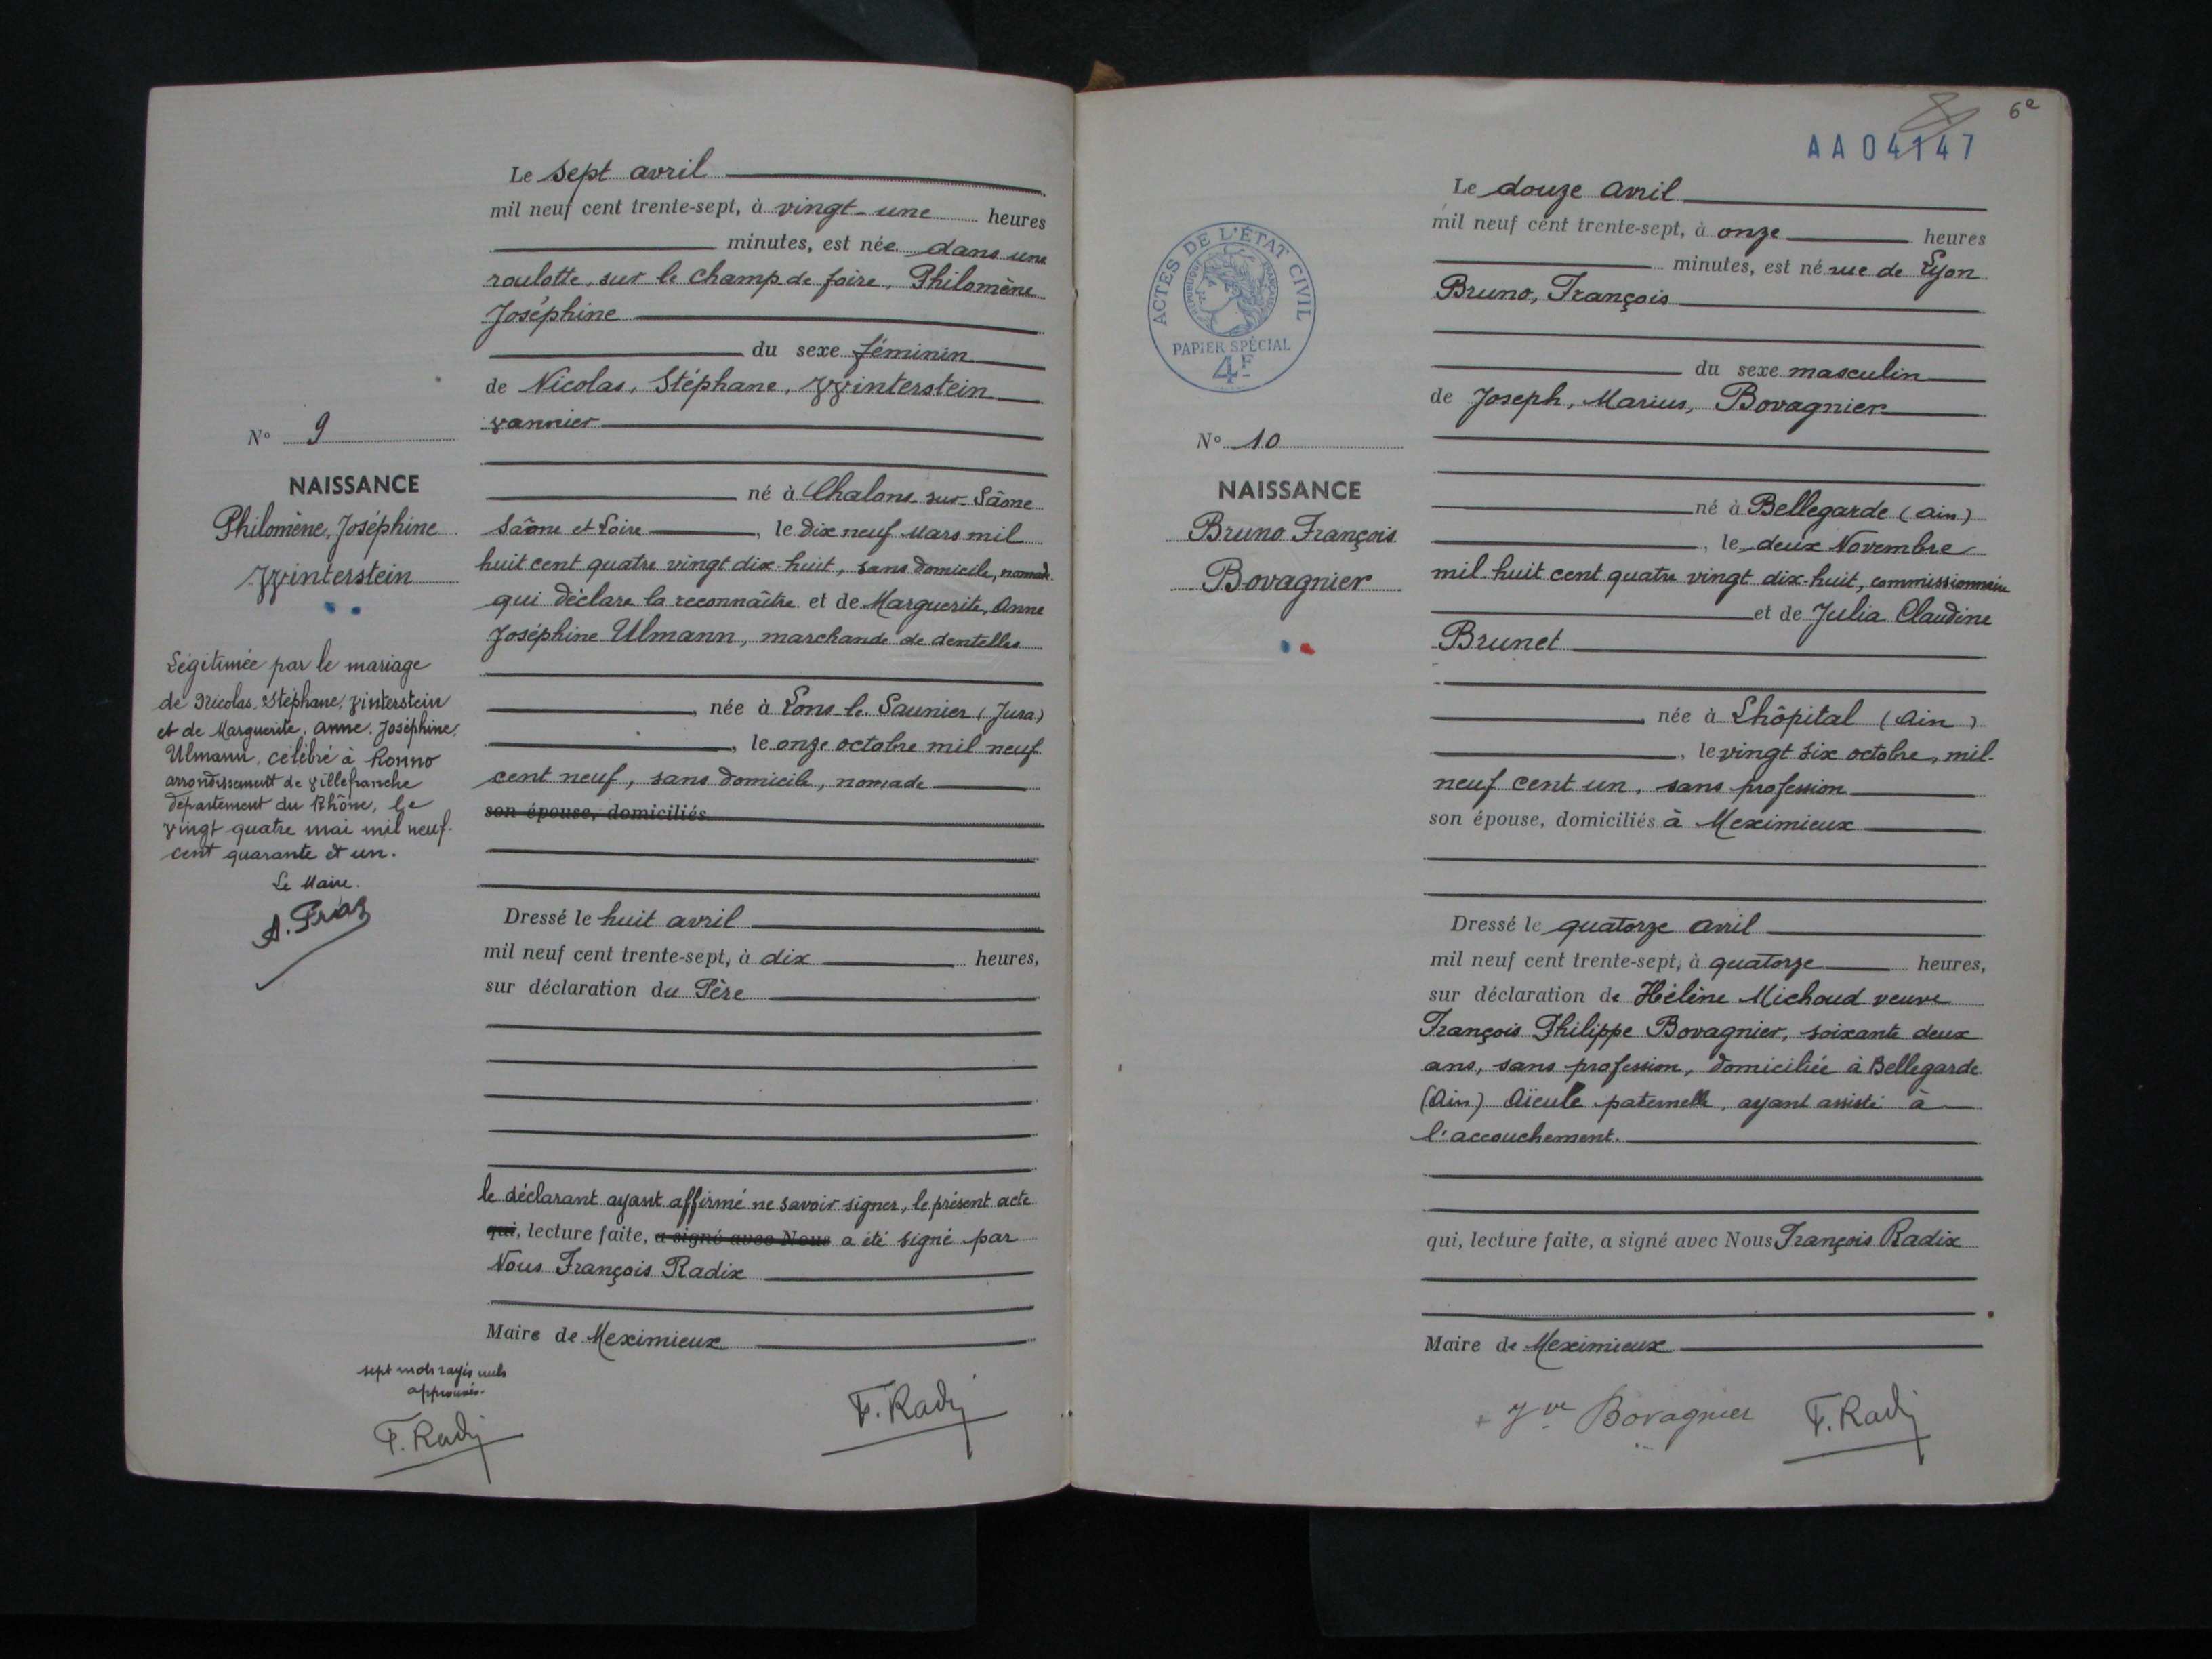 Le sept avril
mil neuf cent trente-sept, à vingt-une heures
minutes, est née dans une
roulotte, sur le champ de foire, Philomène
Joséphine
du sexe féminin
de Nicolas, Stéphane, Winterstein
vannier
N° 9
NAISSANCE
Philomène, Joséphine
Winterstein
né à Chalons sur-Sâone
Saône et Loire, le dix neuf Mars mil
huit cent quatre vingt dix-huit, sans domicile, nomade
qui déclare la reconnaître et de Marguerite, Anne
Joséphine Ulmann, marchande de dentelles
née à Lons-le-Saunier (Jura)
, le onze octobre mil neuf
cent neuf, sans domicile, nomade
son épouse, domiciliés
Légitimée par le mariage
de Nicolas, Stéphane, Vinterstein
et de Marguerite, Anne, Joséphine,
Ulmann, célébré à Ronno
arrondissement de Villefranche
département du Rhône, le
vingt quatre mai mil neuf-
cent quarante et un.
Le Maire.
Dressé le huit avril
mil neuf cent trente-sept, à dix heures,
sur déclaration du Père
le déclarant ayant affirmé ne savoir signer, le présent acte
qui, lecture faite, a signé avec Nous a été signé par
Nous François Radix
Maire de Meximieux
sept mots rayés nuls
approuvés.
F. Radix
F. Radix
6e
AA04147
Le douze avril
mil neuf cent trente-sept, à onze heures
minutes, est né rue de Lyon
Bruno, François
ACTES DE L'ÉTAT CIVIL
PAPIER SPÉCIAL
4F
du sexe masculin
de Joseph, Marius, Bovagnier
N° 10
NAISSANCE
Bruno François
Bovagnier
né à Bellegarde (Ain)
, le deux Novembre
mil huit cent quatre vingt dix-huit, commissionnaire
et de Julia Claudine
Brunet
née à Lhôpital (Ain)
, le vingt six octobre, mil-
neuf cent un, sans profession
son épouse, domiciliés à Meximieux
Dressé le quatorze avril
mil neuf cent trente-sept, à quatorze heures,
sur déclaration de Hélène Michoud veuve
François Philippe Bovagnier, soixante deux
ans, sans profession, domiciliée à Bellegarde
(Ain) Aïeule paternelle, ayant assisté à
l'accouchement.
qui, lecture faite, a signé avec Nous François Radix
Maire de Meximieux
Vve Bovagnier
F. Radix